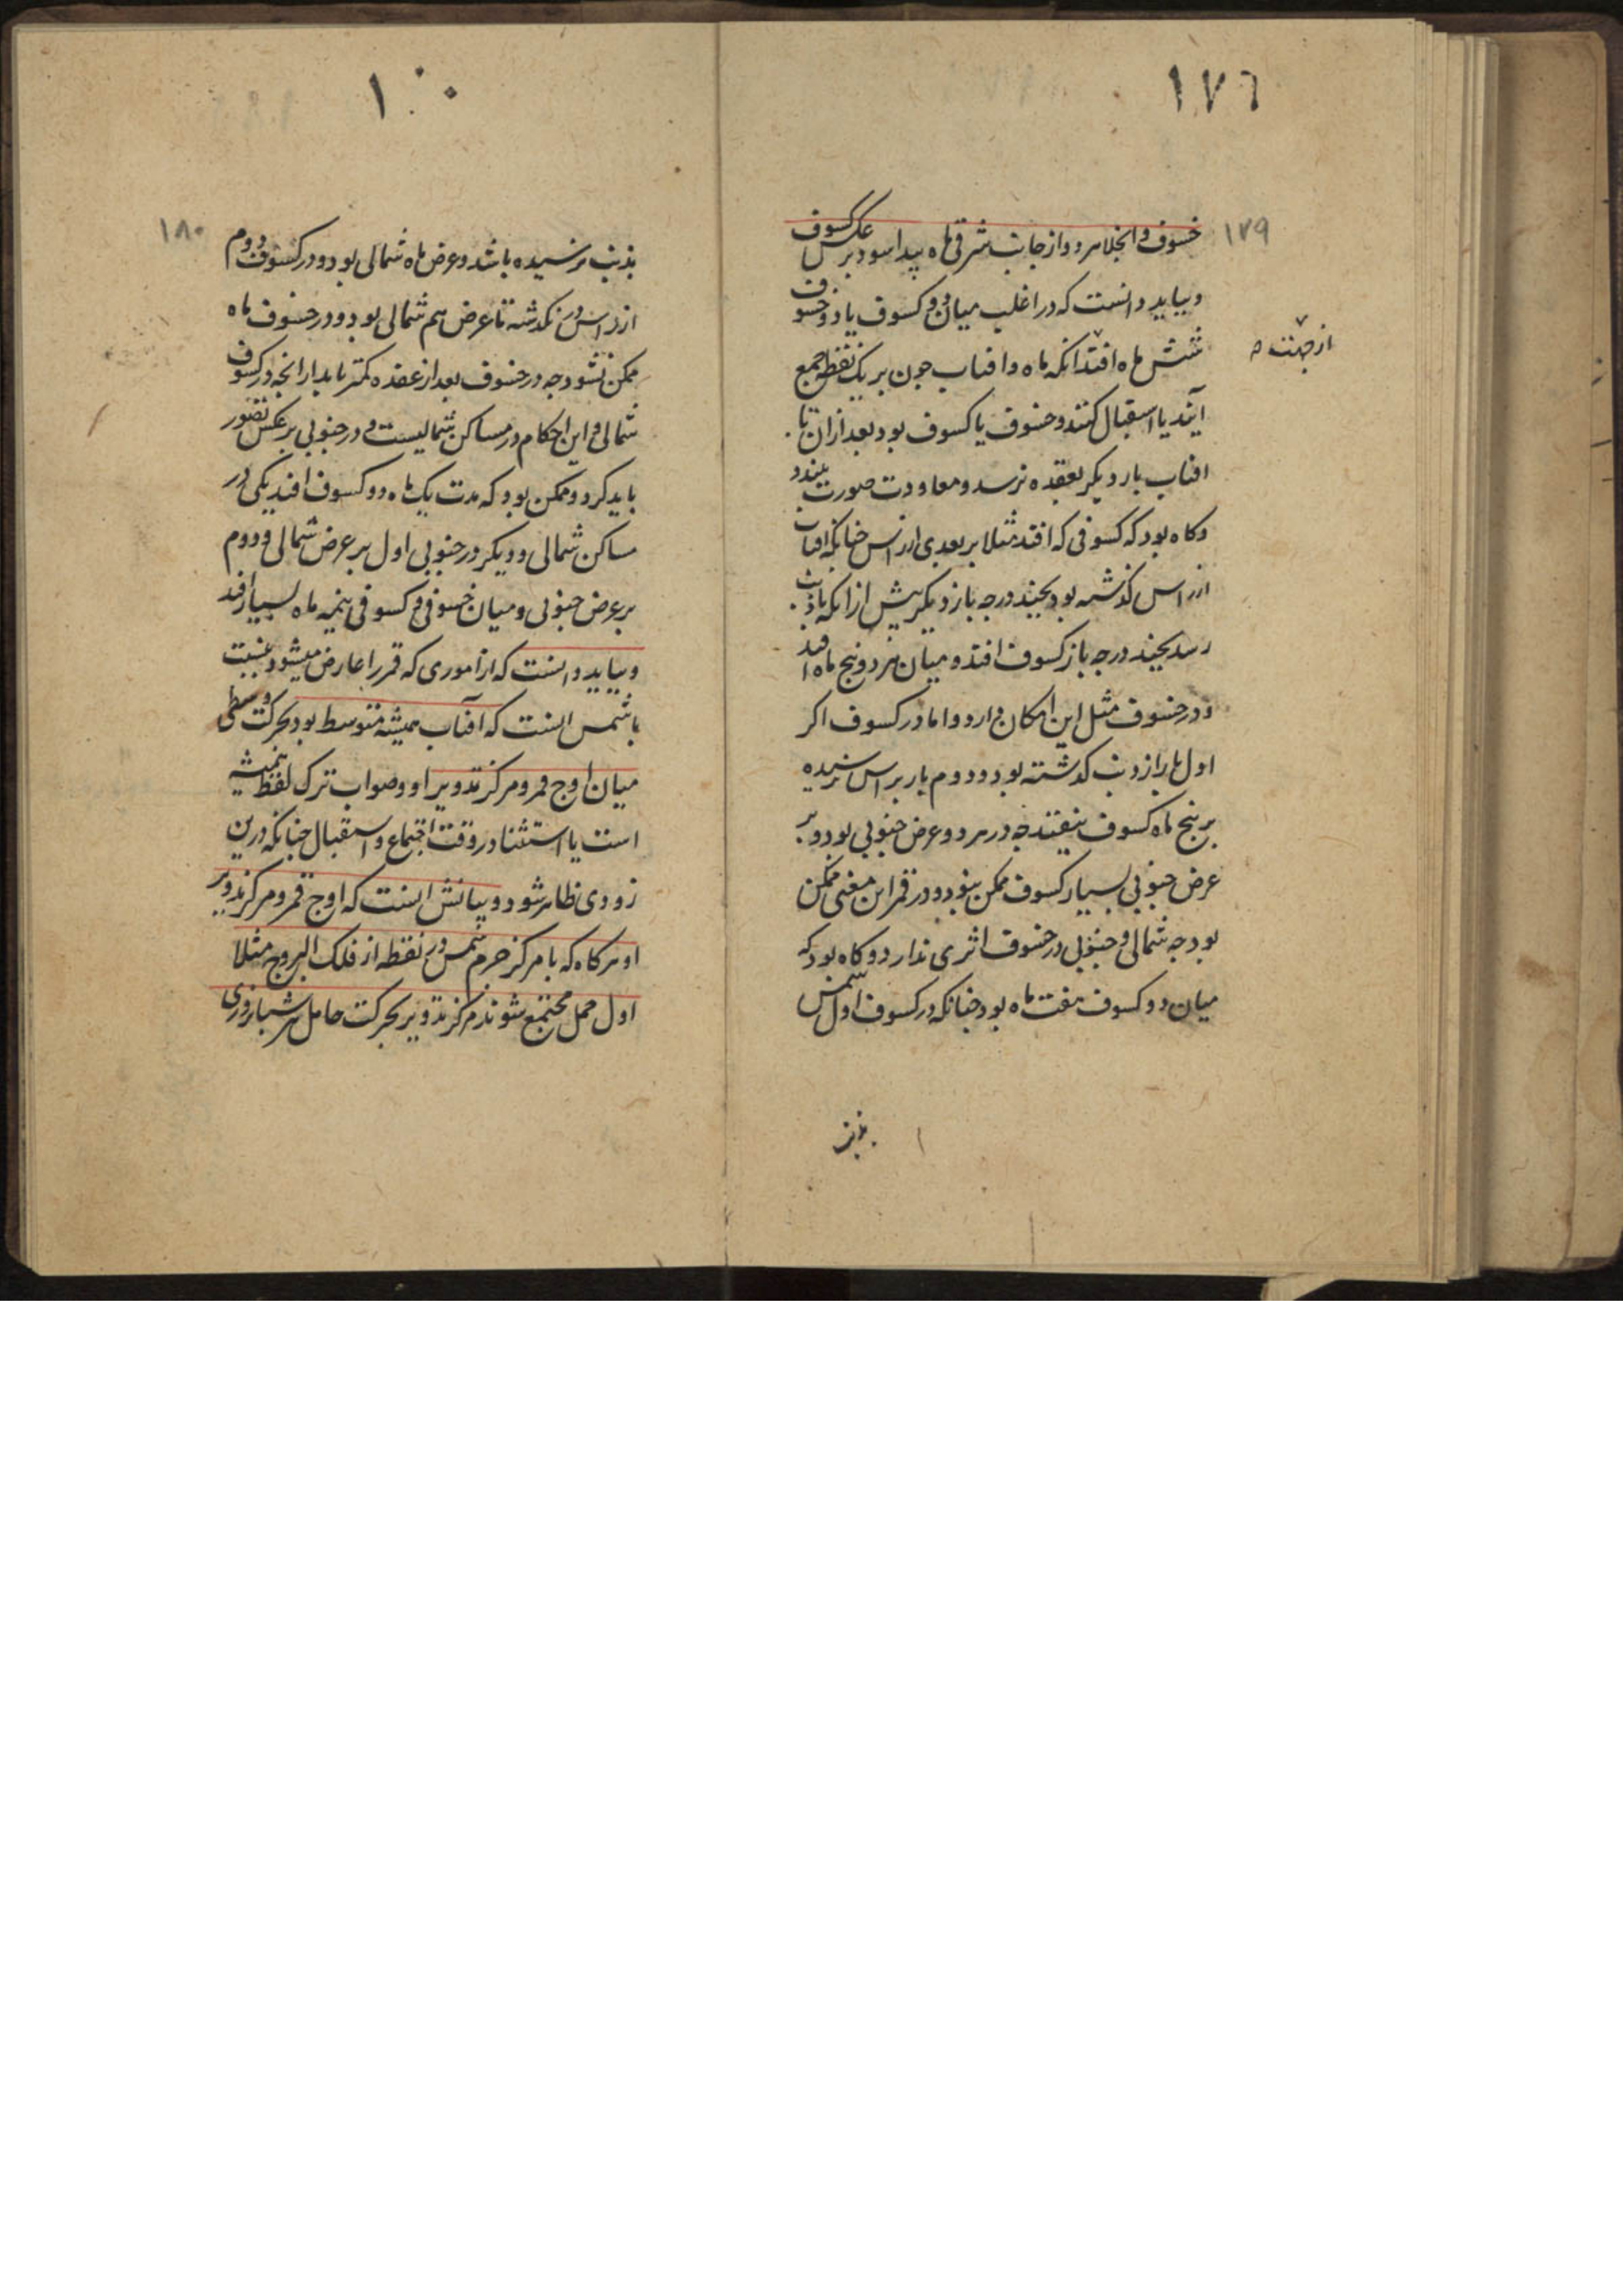 ١٧٦
١٧٩
خسوف و انجلا هر دو از جانب شرقی ماه پیدا شود بر عکس کسوف
و بباید دانست که در اغلب میان دو کسوف یا دو خسوف
شش ماه افتد انکه ماه و افتاب چون بر یک نقطه جمع
از جهت
آیند یا استقبال کنند و خسوف یا کسوف بود بعد ازان تا
افتاب بار دیگر بعقده نرسد و معاودت صورت نبندد
و کاه بود که کسوفی که افتد مثلا بر بعدی از راس چنانکه افتاب
از راس کذشته بود بچند درجه باز دیکر پیش از انکه بذنب
رسد بچند درجه باز کسوف افتد و میان هر دو پنج ماه افتد
و در خسوف مثل این امکان دارد و اما در کسوف اکر
اول بار از ذنب کذشته بود و دوم بار براس نرسیده
بر پنج ماه کسوف نیفتد چه در هر دو عرض جنوبی بود و بر
عرض جنوبی بسیار کسوف ممکن نبود و در قمر این معنی ممکن
بود چه شمالی و جنوبی در خسوف اثری ندارد و کاه بود که
میان دو کسوف هفت ماه بود چنانکه در کسوف اول شمس
بذنب
١٠٠
١٨٠
بذنب نرسیده باشد و عرض ماه شمالی بود و در کسوف دوم
از راس در نکذشته تا عرض هم شمالی بود و در خسوف ماه
ممکن نشود چه در خسوف بعد از عقده کمتر باید از انچه در کسوف
شمالی و این احکام در مساکن شمالیست و در جنوبی بر عکس تصور
باید کرد و ممکن بود که مدت یک ماه دو کسوف افتد یکی در
مساکن شمالی و دیکر در جنوبی اول بر عرض شمالی و دوم
بر عرض جنوبی و میان خسوفی و کسوفی نیمه ماه بسیار افتد
و بباید دانست که از اموری که قمر را عارض میشود بنسبت
با شمس انست که آفتاب همیشه متوسط بود بحرکت وسطی
میان اوج قمر و مرکز تدویر او و صواب ترک لفظ همیشه
است یا استثنا در وقت اجتماع و استقبال چنانکه درین
زودی ظاهر شود و بیانش انست که اوج قمر و مرکز تدویر
او هر کاه که با مرکز جرم شمس در نقطه از فلک البروج مثلا
اول حمل مجتمع شوند مرکز تدویر بحرکت حامل هر شبانروزی